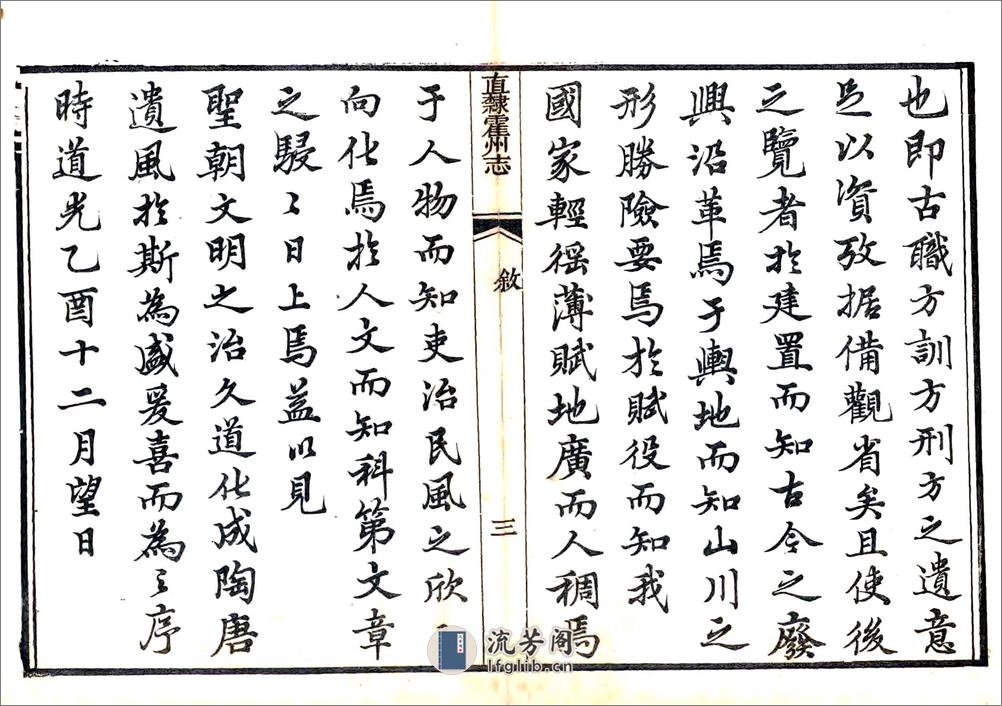 也即古職方訓方刑方之遺意
足以資攷据備觀省矣且使後
之覽者於建置而知古今之廢
興沿革焉于輿地而知山川之
形勝險要焉於賦役而知我
國家輕徭薄賦地廣而人稠焉
直隸霍州志
敘
三
于人物而知吏治民風之欣〻
向化焉於人文而知科第文章
之駸〻日上焉益以見
聖朝文明之治久道化成陶唐
遺風於斯為盛爰喜而為之序
時道光乙酉十二月望日
流芳阁
lfglib.cn